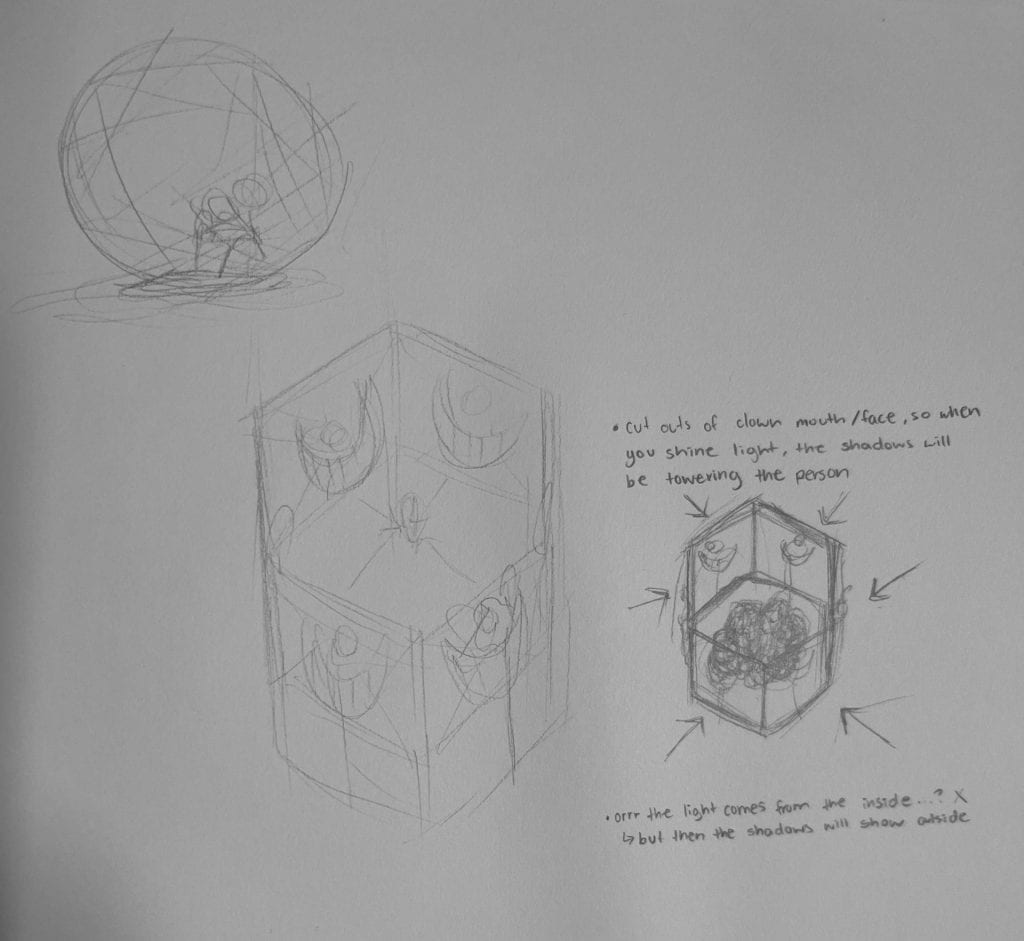 • cut outs of clown mouth/face, so when
you shine light, the shadows will
be towering the person
• orrr the light comes from the inside...? X
↳ but then the shadows will show outside